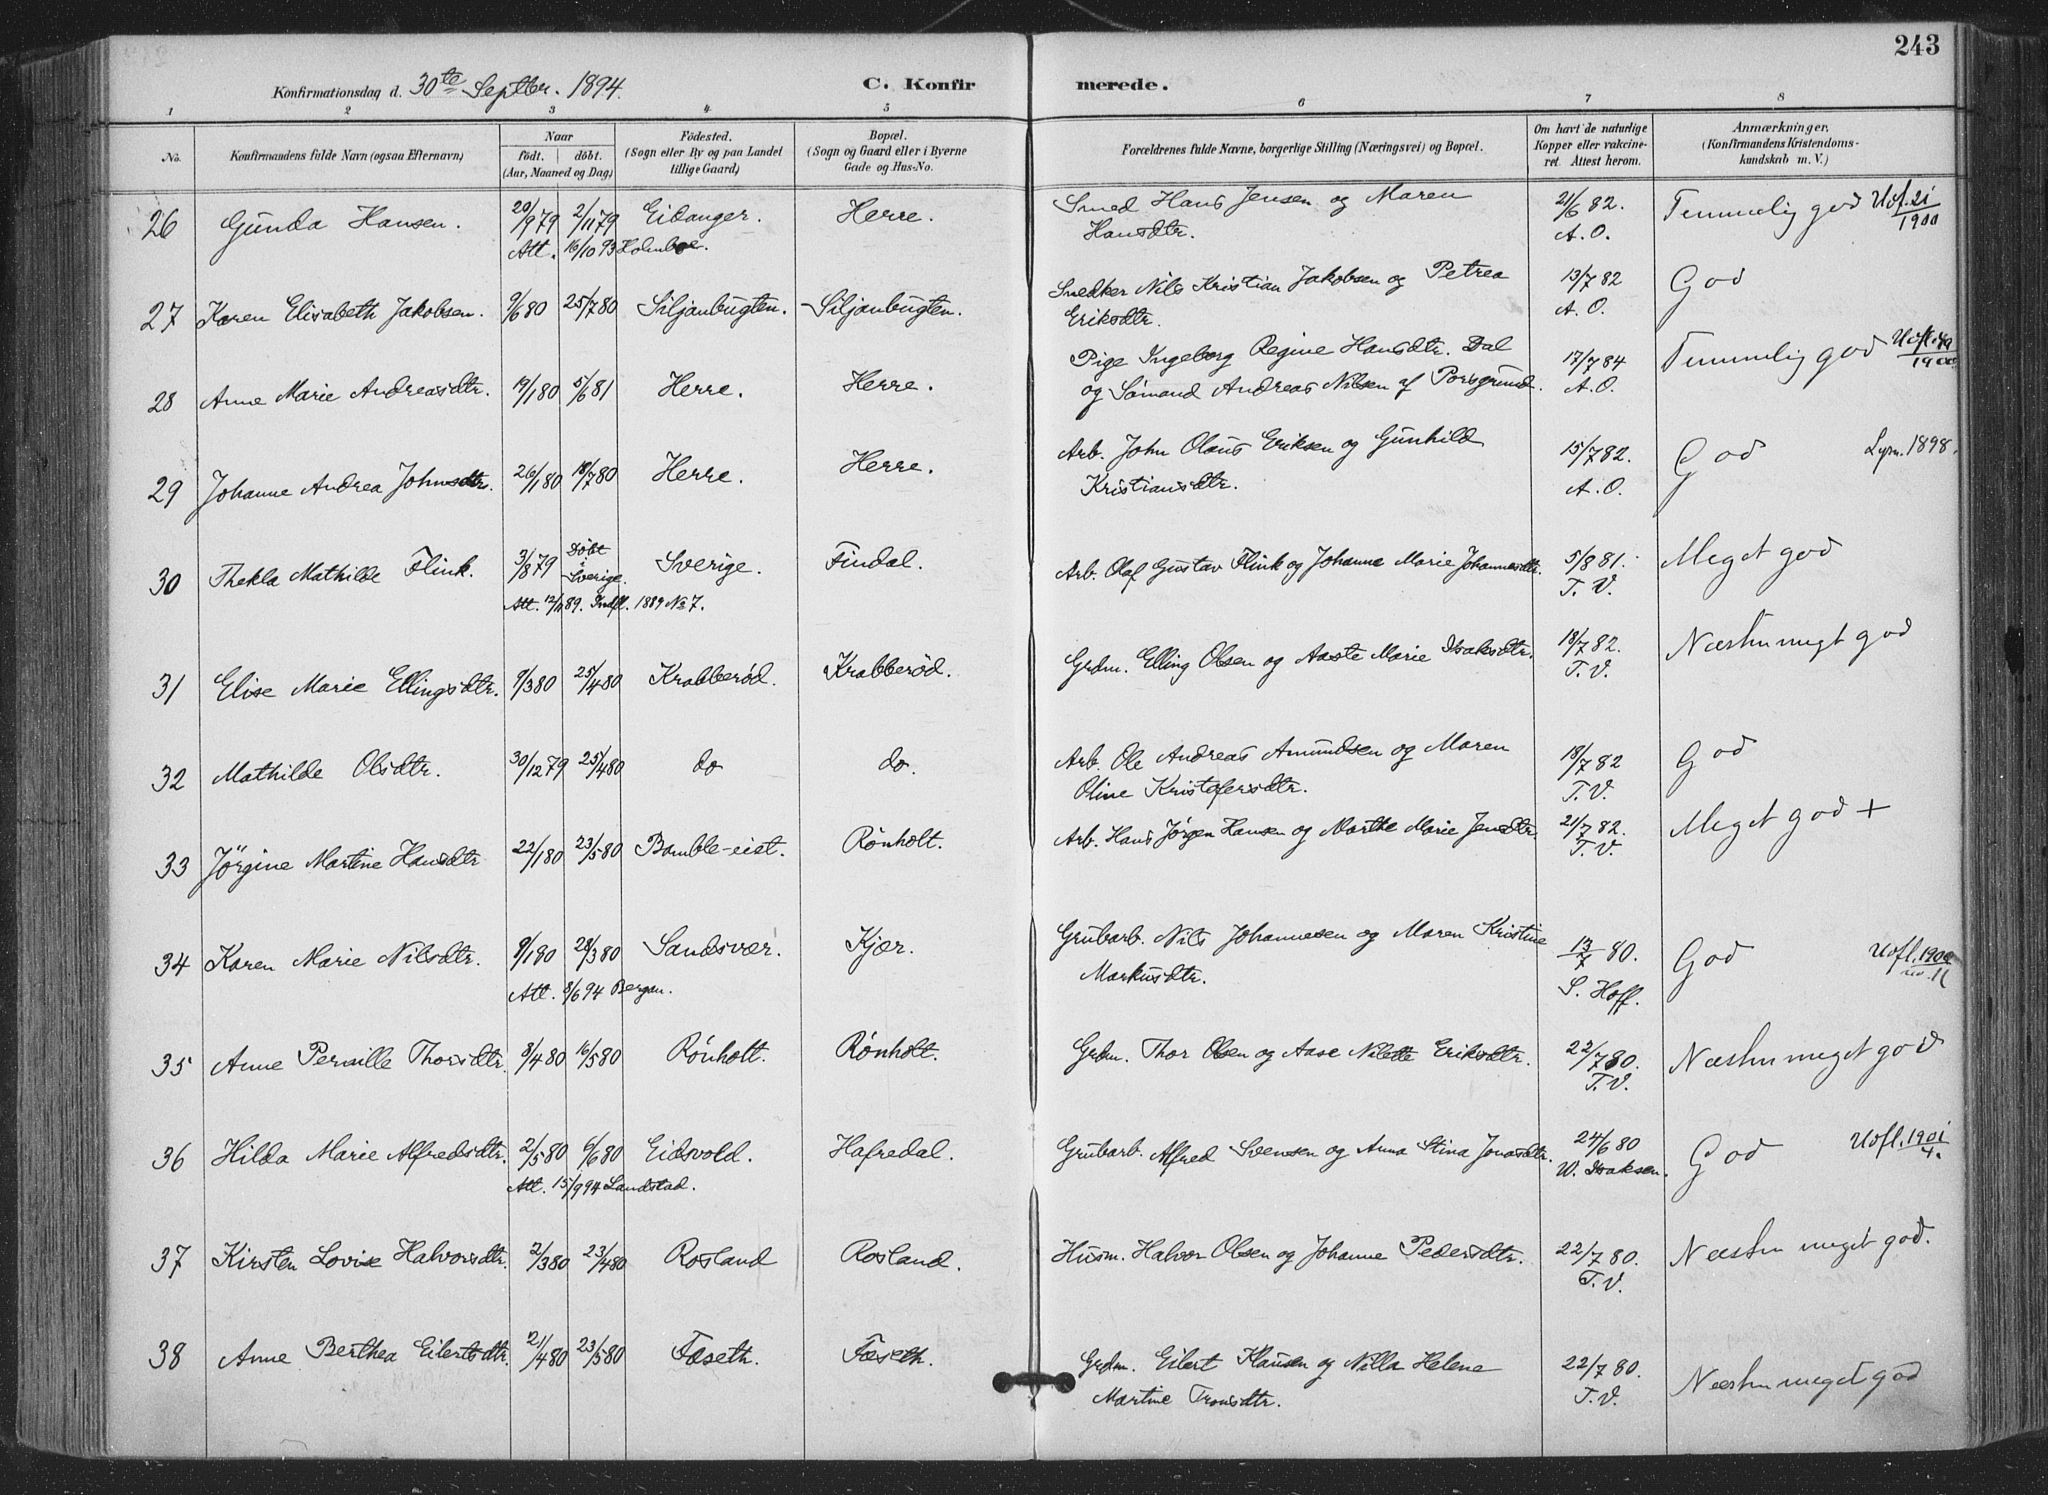 243
Konfirmationsdag d. 30te Septbr. 1894.
C. Konfirmerede.
1 2 3 4 5 6 7 8
No.
Konfirmandens fulde Navn (ogsaa Efternavn)
Naar
födt. döbt.
(Aar, Maaned og Dag)
Födested.
(Sogn eller By og paa Landet
tillige Gaard)
Bopæl.
(Sogn og Gaard eller i Byerne
Gade og Hus-No.
Forældrenes fulde Navne, borgerlige Stilling (Næringsvei) og Bopæl.
Om havt de naturlige
Kopper eller vakcine-
ret. Attest herom.
Anmærkninger.
(Konfirmandens Kristendoms-
kundskab m. V.)
26 Gunda Hansen. 20/9 79 2/11 79 Eidanger. Herre. Smed Hans Jensen og Maren 21/6 82. Temmelig god Udfl. 21/1900
Att. 16/10 93 Holmboe. Hansdtr. A. O.
27 Karen Elisabeth Jakobsen. 9/6 80 25/7 80 Siljanbugten. Siljanbugten. Snedker Nils Kristian Jakobsen og Petrea 13/7 82 God
Eriksdtr. A. O.
28 Anne Marie Andreasdtr. 19/1 80 5/6 81 Herre. Herre. Pige Ingeborg Regine Hansdtr. Dal 17/7 84 Temmelig god
og Sömand Andreas Nilsen af Porsgrund. A. O.
29 Johanne Andrea Johnsdtr. 26/1 80 18/7 80 Herre. Herre. Arb. John Olaus Eriksen og Gunhild 15/7 82. God 1898.
Kristiansdtr. A. O.
30 Thekla Mathilde Flink. 3/8 79 Döbt i Sverige. Sverige. Findal. Arb. Olaf Gustav Flink og Johanne Marie Johannesdtr. 5/8 81. Meget god
Indfl. 1889 No 7. T. V.
31 Elise Marie Ellingsdtr. 9/3 80 25/4 80 Krabberød. Krabberød. Grdm. Elling Olsen og Aaste Marie Isaksdtr. 18/7 82. Næsten meget god
T. V.
32 Mathilde Olsdtr. 30/12 79 25/4 80 do do. Arb. Ole Andreas Amundsen og Maren 18/7 82 God
Oline Kristofersdtr. T. V.
33 Jörgine Martine Hansdtr 22/1 80 23/5 80 Bamble-eist. Rønholt. Arb. Hans Jörgen Hansen og Marthe Marie Jensdtr. 21/7 82. Meget god +
T. V.
34 Karen Marie Nilsdtr. 9/1 80 28/3 80 Sandsvær. Kjær. Grubarb. Nils Johannesen og Maren Kristine 13/7 80. God Udfl. 1900
Att. 8/6 94 Bergan. Markusdtr. S. Hoff. no. 11
35 Anne Pernille Thorsdtr. 8/4 80 16/5 80 Rönholt. Rønholt. Grdm. Thor Olsen og Aase Nilette Eriksdtr. 22/7 80. Næsten meget god
T. V.
36 Hilda Marie Alfredsdtr. 2/5 80 6/6 80 Eidsvold. Hafredal. Grubarb. Alfred Svensen og Anna Stina Jonasdtr. 24/6 80 God Udfl. 1901/4.
Att. 15/9 94 Landstad. W. Isaksen.
37 Kirsten Lovise Halvorsdtr. 2/3 80 23/4 80 Rosland Rosland. Husm. Halvor Olsen og Johanne Pedersdtr. 22/7 80. Næsten meget god.
T. V.
38 Anne Berthea Eilertsdtr. 21/4 80 23/5 80 Fæseth. Fæseth. Grdm. Eilert Klausen og Nilla Helene 22/7 80. Næsten meget god
Martine Tronsdtr. T. V.